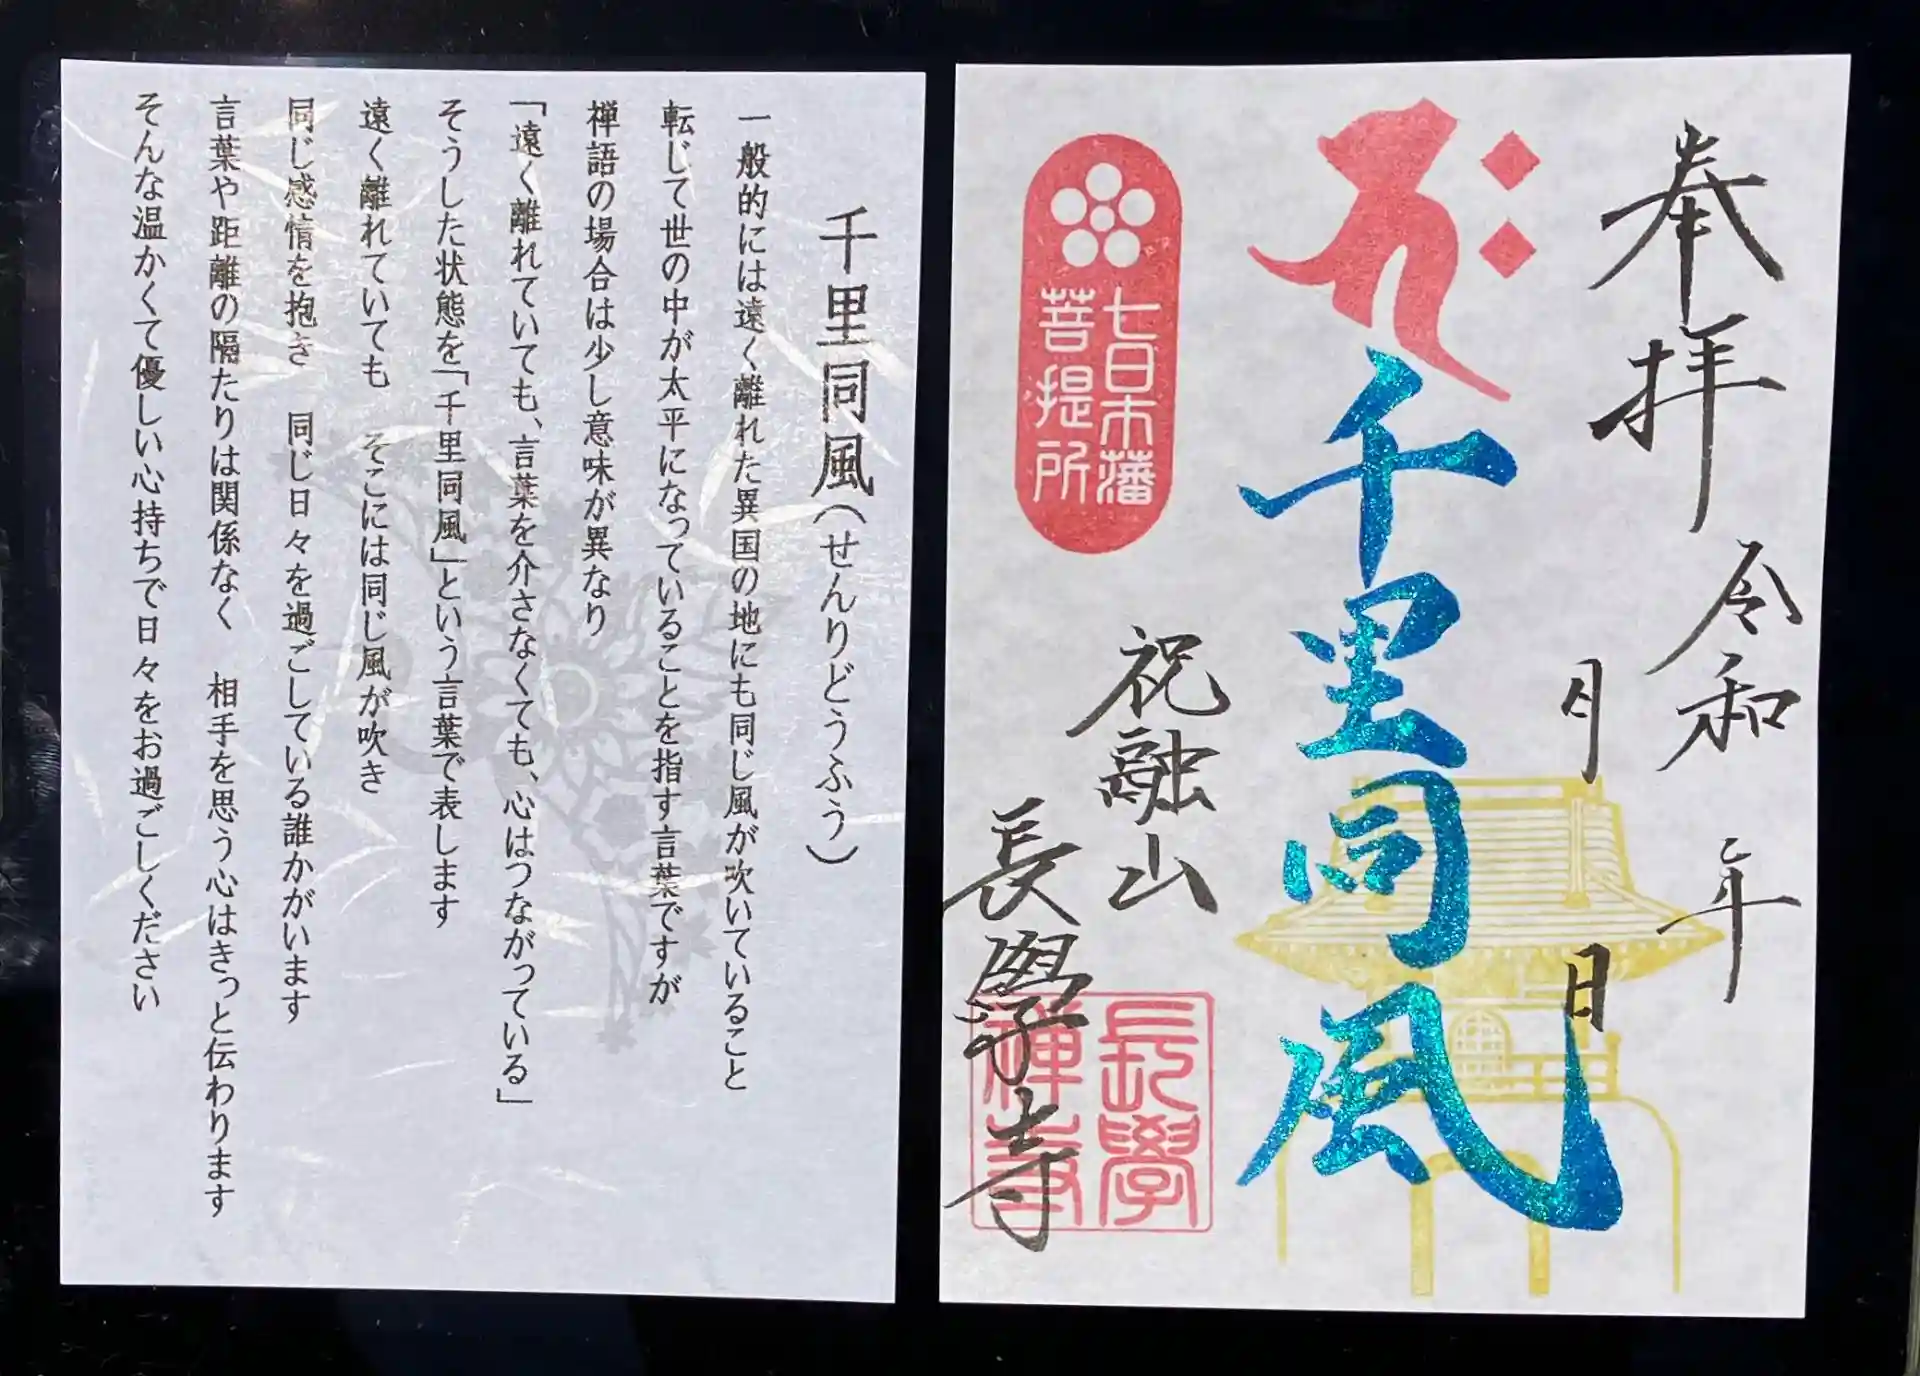 奉拝
令和 年
月 日
千里同風
七日市藩
菩提所
祝融山
長學寺
長學
禅寺
千里同風(せんりどうふう)
一般的には遠く離れた異国の地にも同じ風が吹いていること
転じて世の中が太平になっていることを指す言葉ですが
禅語の場合は少し意味が異なり
「遠く離れていても、言葉を介さなくても、心はつながっている」
そうした状態を「千里同風」という言葉で表します
遠く離れていても そこには同じ風が吹き
同じ感情を抱き 同じ日々を過ごしている誰かがいます
言葉や距離の隔たりは関係なく 相手を思う心はきっと伝わります
そんな温かくて優しい心持ちで日々をお過ごしください